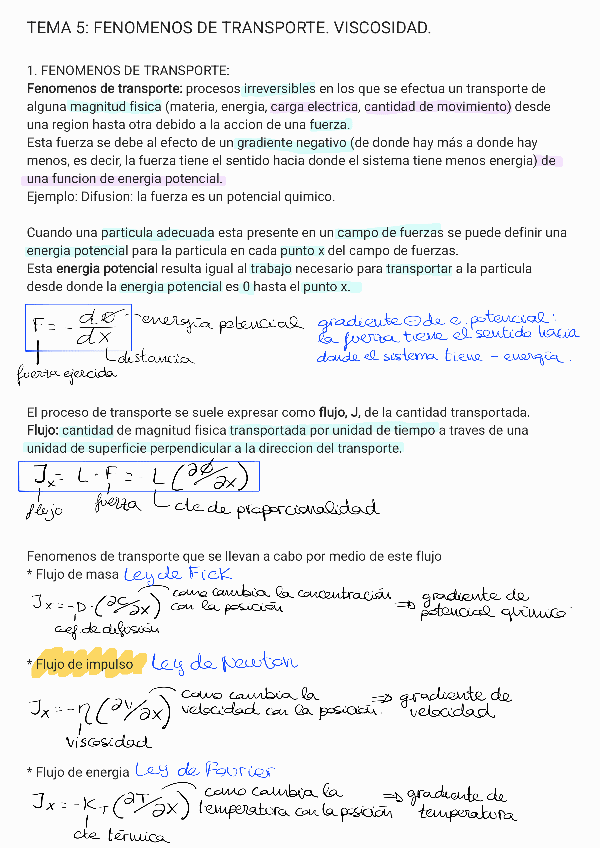 TEMA 5: FENOMENOS DE TRANSPORTE. VISCOSIDAD.
1. FENOMENOS DE TRANSPORTE:
Fenomenos de transporte: procesos irreversibles en los que se efectua un transporte de
alguna magnitud fisica (materia, energia, carga electrica, cantidad de movimiento) desde
una region hasta otra debido a la accion de una fuerza.
Esta fuerza se debe al efecto de un gradiente negativo (de donde hay más a donde hay
menos, es decir, la fuerza tiene el sentido hacia donde el sistema tiene menos energia) de
una funcion de energia potencial.
Ejemplo: Difusion: la fuerza es un potencial quimico.
Cuando una particula adecuada esta presente en un campo de fuerzas se puede definir una
energia potencial para la particula en cada punto x del campo de fuerzas.
Esta energia potencial resulta igual al trabajo necesario para transportar a la particula
desde donde la energia potencial es 0 hasta el punto x.
F = - dØ/dx
energía potencial
distancia
fuerza ejercida
gradiente ⊖ de e. potencial:
la fuerza tiene el sentido hacia
donde el sistema tiene - energía.
El proceso de transporte se suele expresar como flujo, J, de la cantidad transportada.
Flujo: cantidad de magnitud fisica transportada por unidad de tiempo a traves de una
unidad de superficie perpendicular a la direccion del transporte.
Jx = L · F = L (∂Ø/∂x)
flujo fuerza cte de proporcionalidad
Fenomenos de transporte que se llevan a cabo por medio de este flujo
* Flujo de masa Ley de Fick.
Jx = -D · (∂C/∂x) como cambia la concentración con la posición ⇒ gradiente de potencial químico
coef. de difusión
* Flujo de impulso Ley de Newton
Jx = -η (∂v/∂x) como cambia la velocidad con la posición. ⇒ gradiente de velocidad
viscosidad
* Flujo de energia Ley de Fourier
Jx = -K_T (∂T/∂x) como cambia la temperatura con la posición ⇒ gradiente de temperatura
cte térmica